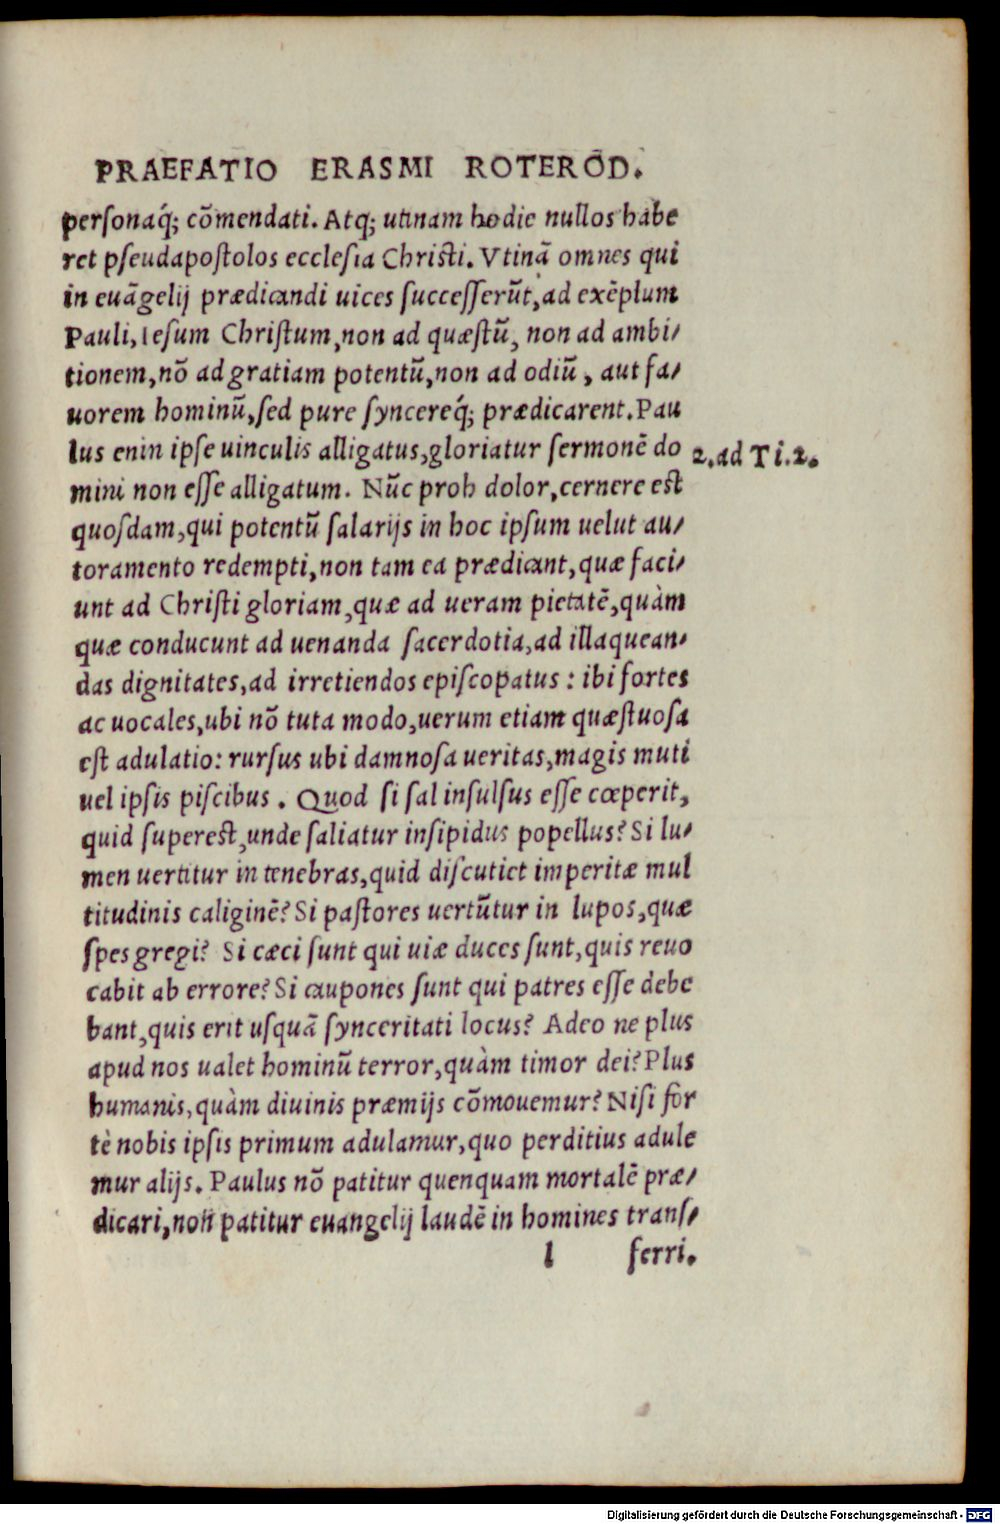 PRAEFATIO ERASMI ROTEROD.
personaq́; cōmendati. Atq; utinam hodie nullos habe
ret pseudapostolos ecclesia Christi. Vtinā omnes qui
in euāgelij prædicandi uices successerūt, ad exēplum
Pauli, Iesum Christum, non ad quæstū, non ad ambi⸗
tionem, nō ad gratiam potentū, non ad odiū, aut fa⸗
uorem hominū, sed pure syncereq́; prædicarent. Pau
lus enin ipse uinculis alligatus, gloriatur sermonē do
2. ad Ti. 2.
mini non esse alligatum. Nūc proh dolor, cernere est
quosdam, qui potentū salarijs in hoc ipsum uelut au⸗
toramento redempti, non tam ea prædicant, quæ faci⸗
unt ad Christi gloriam, quæ ad ueram pietatē, quàm
quæ conducunt ad uenanda sacerdotia, ad illaquean⸗
das dignitates, ad irretiendos episcopatus: ibi fortes
ac uocales, ubi nō tuta modo, uerum etiam quæstuosa
est adulatio: rursus ubi damnosa ueritas, magis muti
uel ipsis piscibus. Quod si sal insulsus esse cœperit,
quid superest, unde saliatur insipidus popellus? Si lu⸗
men uertitur in tenebras, quid discutiet imperitæ mul
titudinis caliginē? Si pastores uertūtur in lupos, quæ
spes gregi? Si cæci sunt qui uiæ duces sunt, quis reuo
cabit ab errore? Si caupones sunt qui patres esse debe
bant, quis erit usquā synceritati locus? Adeo ne plus
apud nos ualet hominū terror, quàm timor dei? Plus
humanis, quàm diuinis præmijs cōmouemur? Nisi for
tè nobis ipsis primum adulamur, quo perditius adule
mur alijs. Paulus nō patitur quenquam mortalē præ⸗
dicari, non patitur euangelij laudē in homines trans⸗
l ferri.
Digitalisierung gefördert durch die Deutsche Forschungsgemeinschaft - DFG